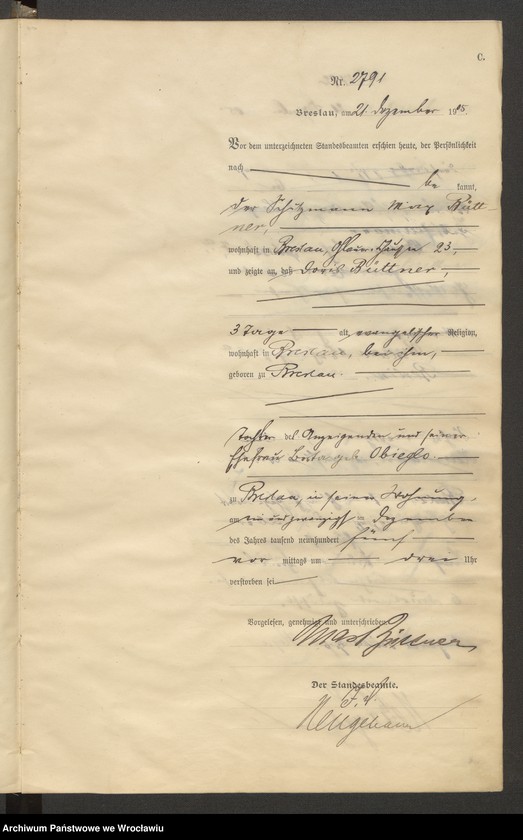 C.
Nr. 2791
Breslau, am 21. Dezember 1905.
Vor dem unterzeichneten Standesbeamten erschien heute, der Persönlichkeit
nach be kannt,
der Schutzmann Max Bütt
ner,
wohnhaft in Breslau, 23,
und zeigte an, daß Doris Büttner,
3 Tage alt, evangelischer Religion,
wohnhaft in Breslau, bei ihm,
geboren zu Breslau.
Tochter des Anzeigenden und seiner
Ehefrau geb. Obieglo.
zu Breslau, in seiner Wohnung,
am ein und zwanzigsten Dezember
des Jahres tausend neunhundert fünf
vor mittags um drei Uhr
verstorben sei
Vorgelesen, genehmigt und unterschrieben
Max Büttner
Der Standesbeamte.
Archiwum Państwowe we Wrocławiu